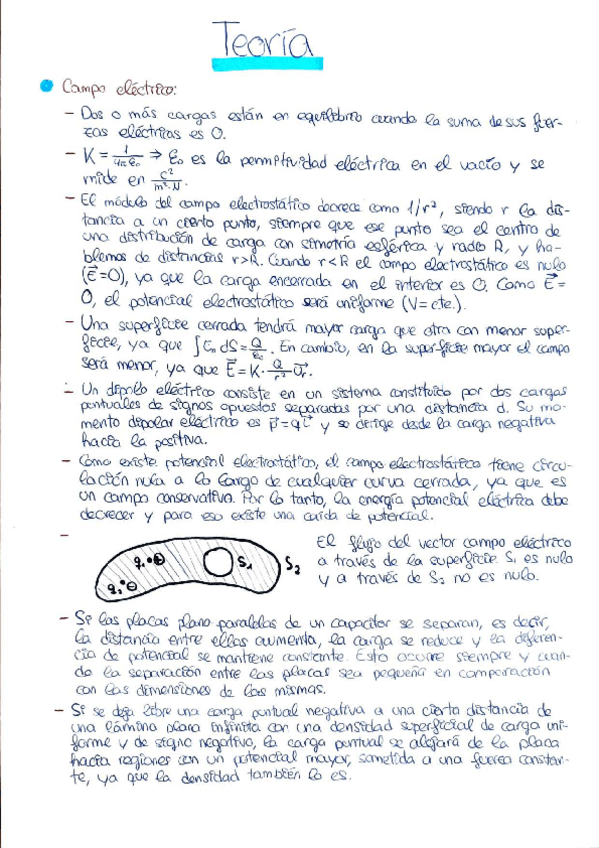 Teoría
Campo eléctrico:
- Dos o más cargas están en equilibrio cuando la suma de sus fuer-
zas eléctricas es 0.
- K = 1/4πε₀ → ε₀ es la permitividad eléctrica en el vacío y se
mide en C²/m²·N.
- El módulo del campo electrostático decrece como 1/r², siendo r la dis-
tancia a un cierto punto, siempre que ese punto sea el centro de
una distribución de carga con simetría esférica y radio R, y ha-
blemos de distancias r>R. Cuando r<R el campo electrostático es nulo
(E⃗=0), ya que la carga encerrada en el interior es 0. Como E⃗=
0, el potencial electrostático será uniforme (V=cte.).
- Una superficie cerrada tendrá mayor carga que otra con menor super-
ficie, ya que ∫En dS = Q/ε₀. En cambio, en la superficie mayor el campo
será menor, ya que E⃗ = K·Q/r² u⃗r.
- Un dipolo eléctrico consiste en un sistema constituido por dos cargas
puntuales de signos opuestos separadas por una distancia d. Su mo-
mento dipolar eléctrico es p⃗=qL⃗ y se dirige desde la carga negativa
hacia la positiva.
- Como existe potencial electrostático, el campo electrostático tiene circu-
lación nula a lo largo de cualquier curva cerrada, ya que es
un campo conservativo. Por lo tanto, la energía potencial eléctrica debe
decrecer y para eso existe una caída de potencial.
- q₁ ⊕ q₂ ⊖ S₁ S₂
El flujo del vector campo eléctrico
a través de la superficie S₁ es nulo
y a través de S₂ no es nulo.
- Si las placas plano paralelas de un capacitor se separan, es decir,
la distancia entre ellas aumenta, la carga se reduce y la diferen-
cia de potencial se mantiene constante. Esto ocurre siempre y cuan-
do la separación entre las placas sea pequeña en comparación
con las dimensiones de las mismas.
- Si se deja libre una carga puntual negativa a una cierta distancia de
una lámina plana infinita con una densidad superficial de carga uni-
forme y de signo negativo, la carga puntual se alejará de la placa
hacia regiones con un potencial mayor, sometida a una fuerza constan-
te, ya que la densidad también lo es.